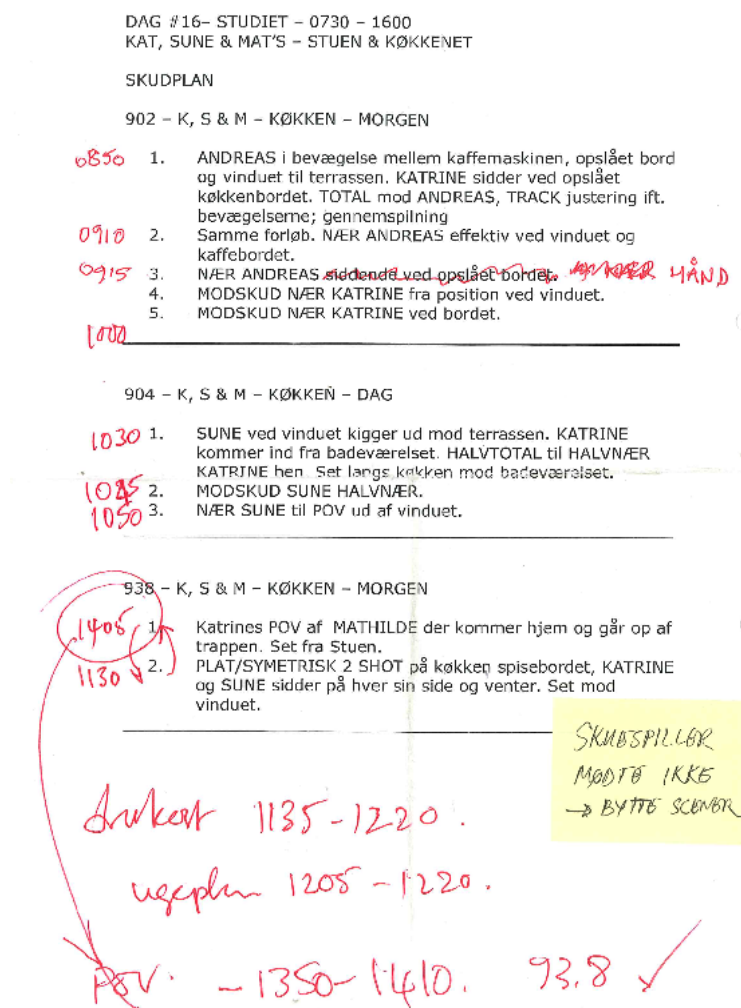 DAG #16– STUDIET – 0730 – 1600
KAT, SUNE & MAT'S – STUEN & KØKKENET
SKUDPLAN
902 – K, S & M – KØKKEN – MORGEN
0850 1. ANDREAS i bevægelse mellem kaffemaskinen, opslået bord
og vinduet til terrassen. KATRINE sidder ved opslået
køkkenbordet. TOTAL mod ANDREAS, TRACK justering ift.
bevægelserne; gennemspilning
0910 2. Samme forløb. NÆR ANDREAS effektiv ved vinduet og
kaffebordet.
0915 3. NÆR ANDREAS siddende ved opslået bordet. HÅND
4. MODSKUD NÆR KATRINE fra position ved vinduet.
5. MODSKUD NÆR KATRINE ved bordet.
1000
904 – K, S & M – KØKKEN – DAG
1030 1. SUNE ved vinduet kigger ud mod terrassen. KATRINE
kommer ind fra badeværelset. HALVTOTAL til HALVNÆR
KATRINE hen. Set langs køkken mod badeværelset.
1045 2. MODSKUD SUNE HALVNÆR.
1050 3. NÆR SUNE til POV ud af vinduet.
938 – K, S & M – KØKKEN – MORGEN
1405 1. Katrines POV af MATHILDE der kommer hjem og går op af
trappen. Set fra Stuen.
1130 2. PLAT/SYMETRISK 2 SHOT på køkken spisebordet, KATRINE
og SUNE sidder på hver sin side og venter. Set mod
vinduet.
SKUESPILLER
MØDTE IKKE
→ BYTTE SCENER
1135-1220.
ugeplan 1205-1220.
POV. -1350-1410. 93,8 ✓